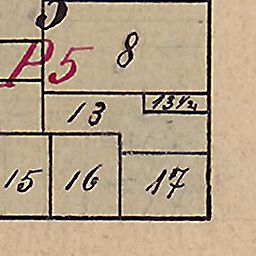 8
P5
13 13½
15 16 17